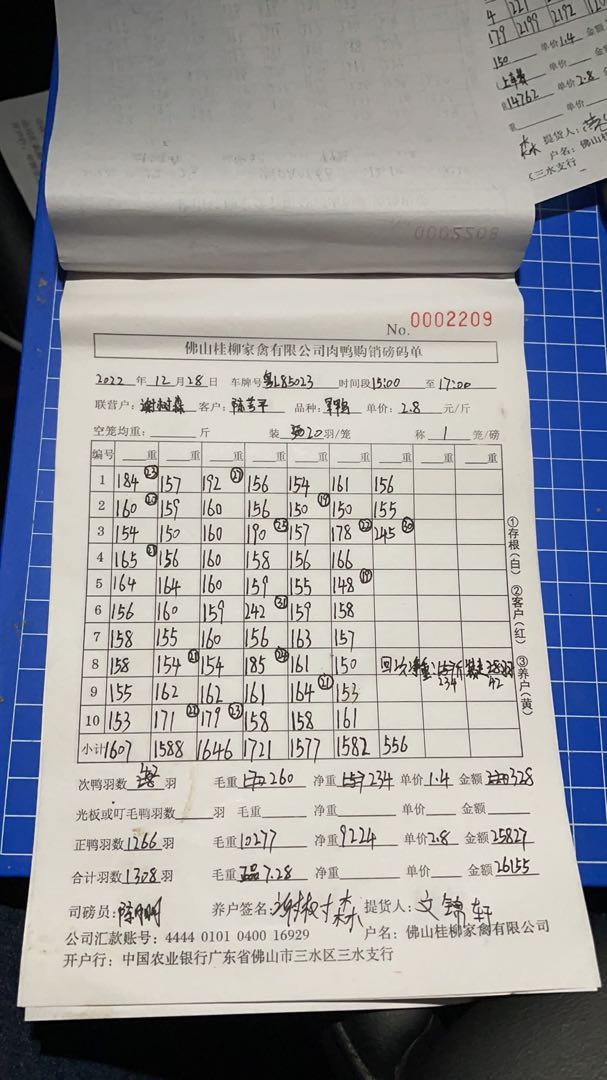 4 221
179 2199 2192
150 单价1.4 金额
上车费 单价
14762 单价2.8
重 单价
森 提货人：
户名：佛山桂
三水支行
0002208
No. 0002209
佛山桂柳家禽有限公司肉鸭购销磅码单
2022 年 12 月 28 日 车牌号粤L85023 时间段15:00 至 17:00
联营户：谢树森 客户：陈芳平 品种： 单价：2.8 元/斤
空笼均重： 斤 装 20 羽/笼 称 1 笼/磅
编号 重 重 重 重 重 重 重 重 重
1 184 23 157 192 156 154 161 156
2 160 20 159 160 156 150 19 150 155
3 154 150 160 190 25 157 178 22 245 30
4 165 21 156 160 158 156 166
5 164 164 160 159 155 148 19
6 156 160 159 242 31 159 158
7 158 155 160 156 163 157
8 158 154 21 154 185 161 150 回 次 净重 234 42
9 155 162 162 161 164 21 153
10 153 171 22 179 23 158 158 161
小计 1607 1588 1646 1721 1577 1582 556
①存根（白） ②客户（红） ③养户（黄）
次鸭羽数 42 羽 毛重 260 净重 234 单价 1.4 金额 328
光板或叮毛鸭羽数 羽 毛重 净重 单价 金额
正鸭羽数 1266 羽 毛重 10277 净重 9224 单价 2.8 金额 25827
合计羽数 1308 羽 毛重 7.28 净重 单价 金额 26155
司磅员： 养户签名：谢树森 提货人：文锦轩
公司汇款账号：4444 0101 0400 16929 户名：佛山桂柳家禽有限公司
开户行：中国农业银行广东省佛山市三水区三水支行